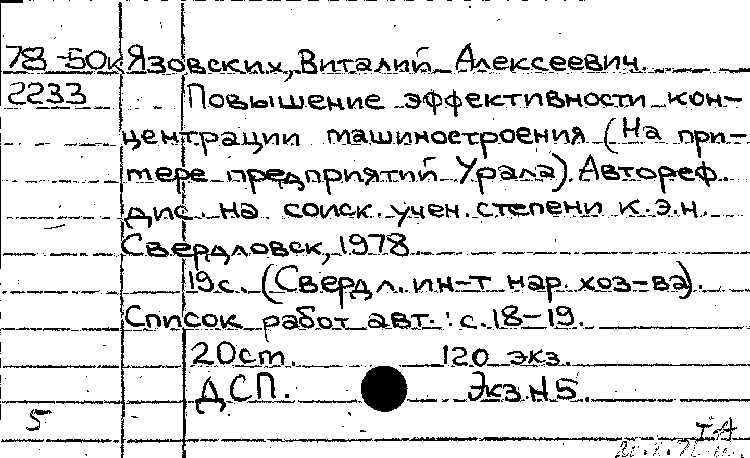 78-50к Язовских, Виталий Алексеевич.
2233 Повышение эффективности кон-
центрации машиностроения (На при-
мере предприятий Урала). Автореф.
дис. на соиск. учен. степени к.э.н.
Свердловск, 1978
19с. (Свердл. ин-т нар. хоз-ва).
Список работ авт.: с.18-19.
20см. 120 экз.
ДСП. Экз.N5.
5